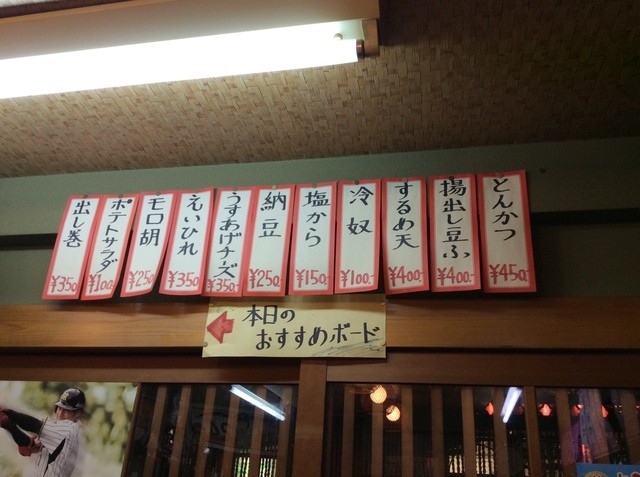 とんかつ
¥450
揚出し豆ふ
¥400-
するめ天
¥400-
冷奴
¥100-
塩から
¥150
納豆
¥250
うすあげチーズ
¥350
えいひれ
¥350
モロ胡
¥250
ポテトサラダ
¥100
出し巻
¥350
本日の
おすすめボード